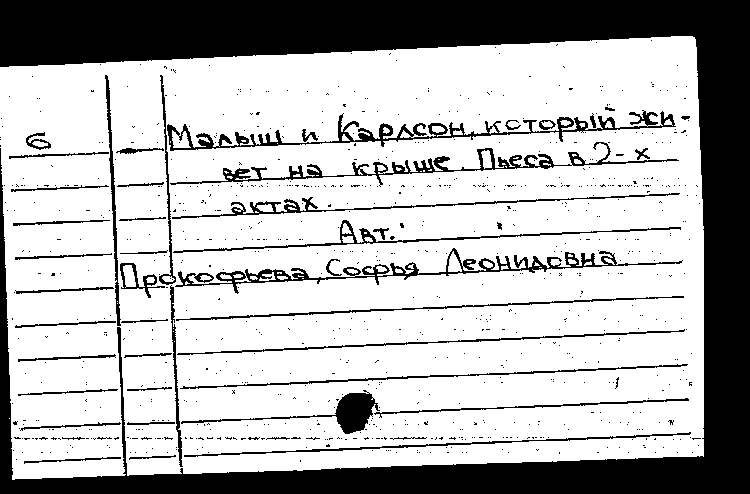 6 - Малыш и Карлсон, который жи-
вет на крыше. Пьеса в 2-х
актах.
Авт.:
Прокофьева, Софья Леонидовна.